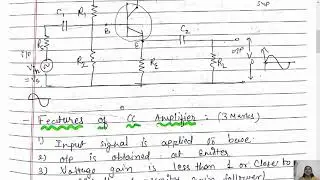 C1
R1
C2
B
E
o/p
Rs
i/p
Vin
R2
RE
RL
o/p
V
Features of CC Amplifier : (3 Marks)
1) Input signal is applied to base
2) o/p is obtained at Emitter
3) Voltage gain is less than 1 or close to
gain follower)